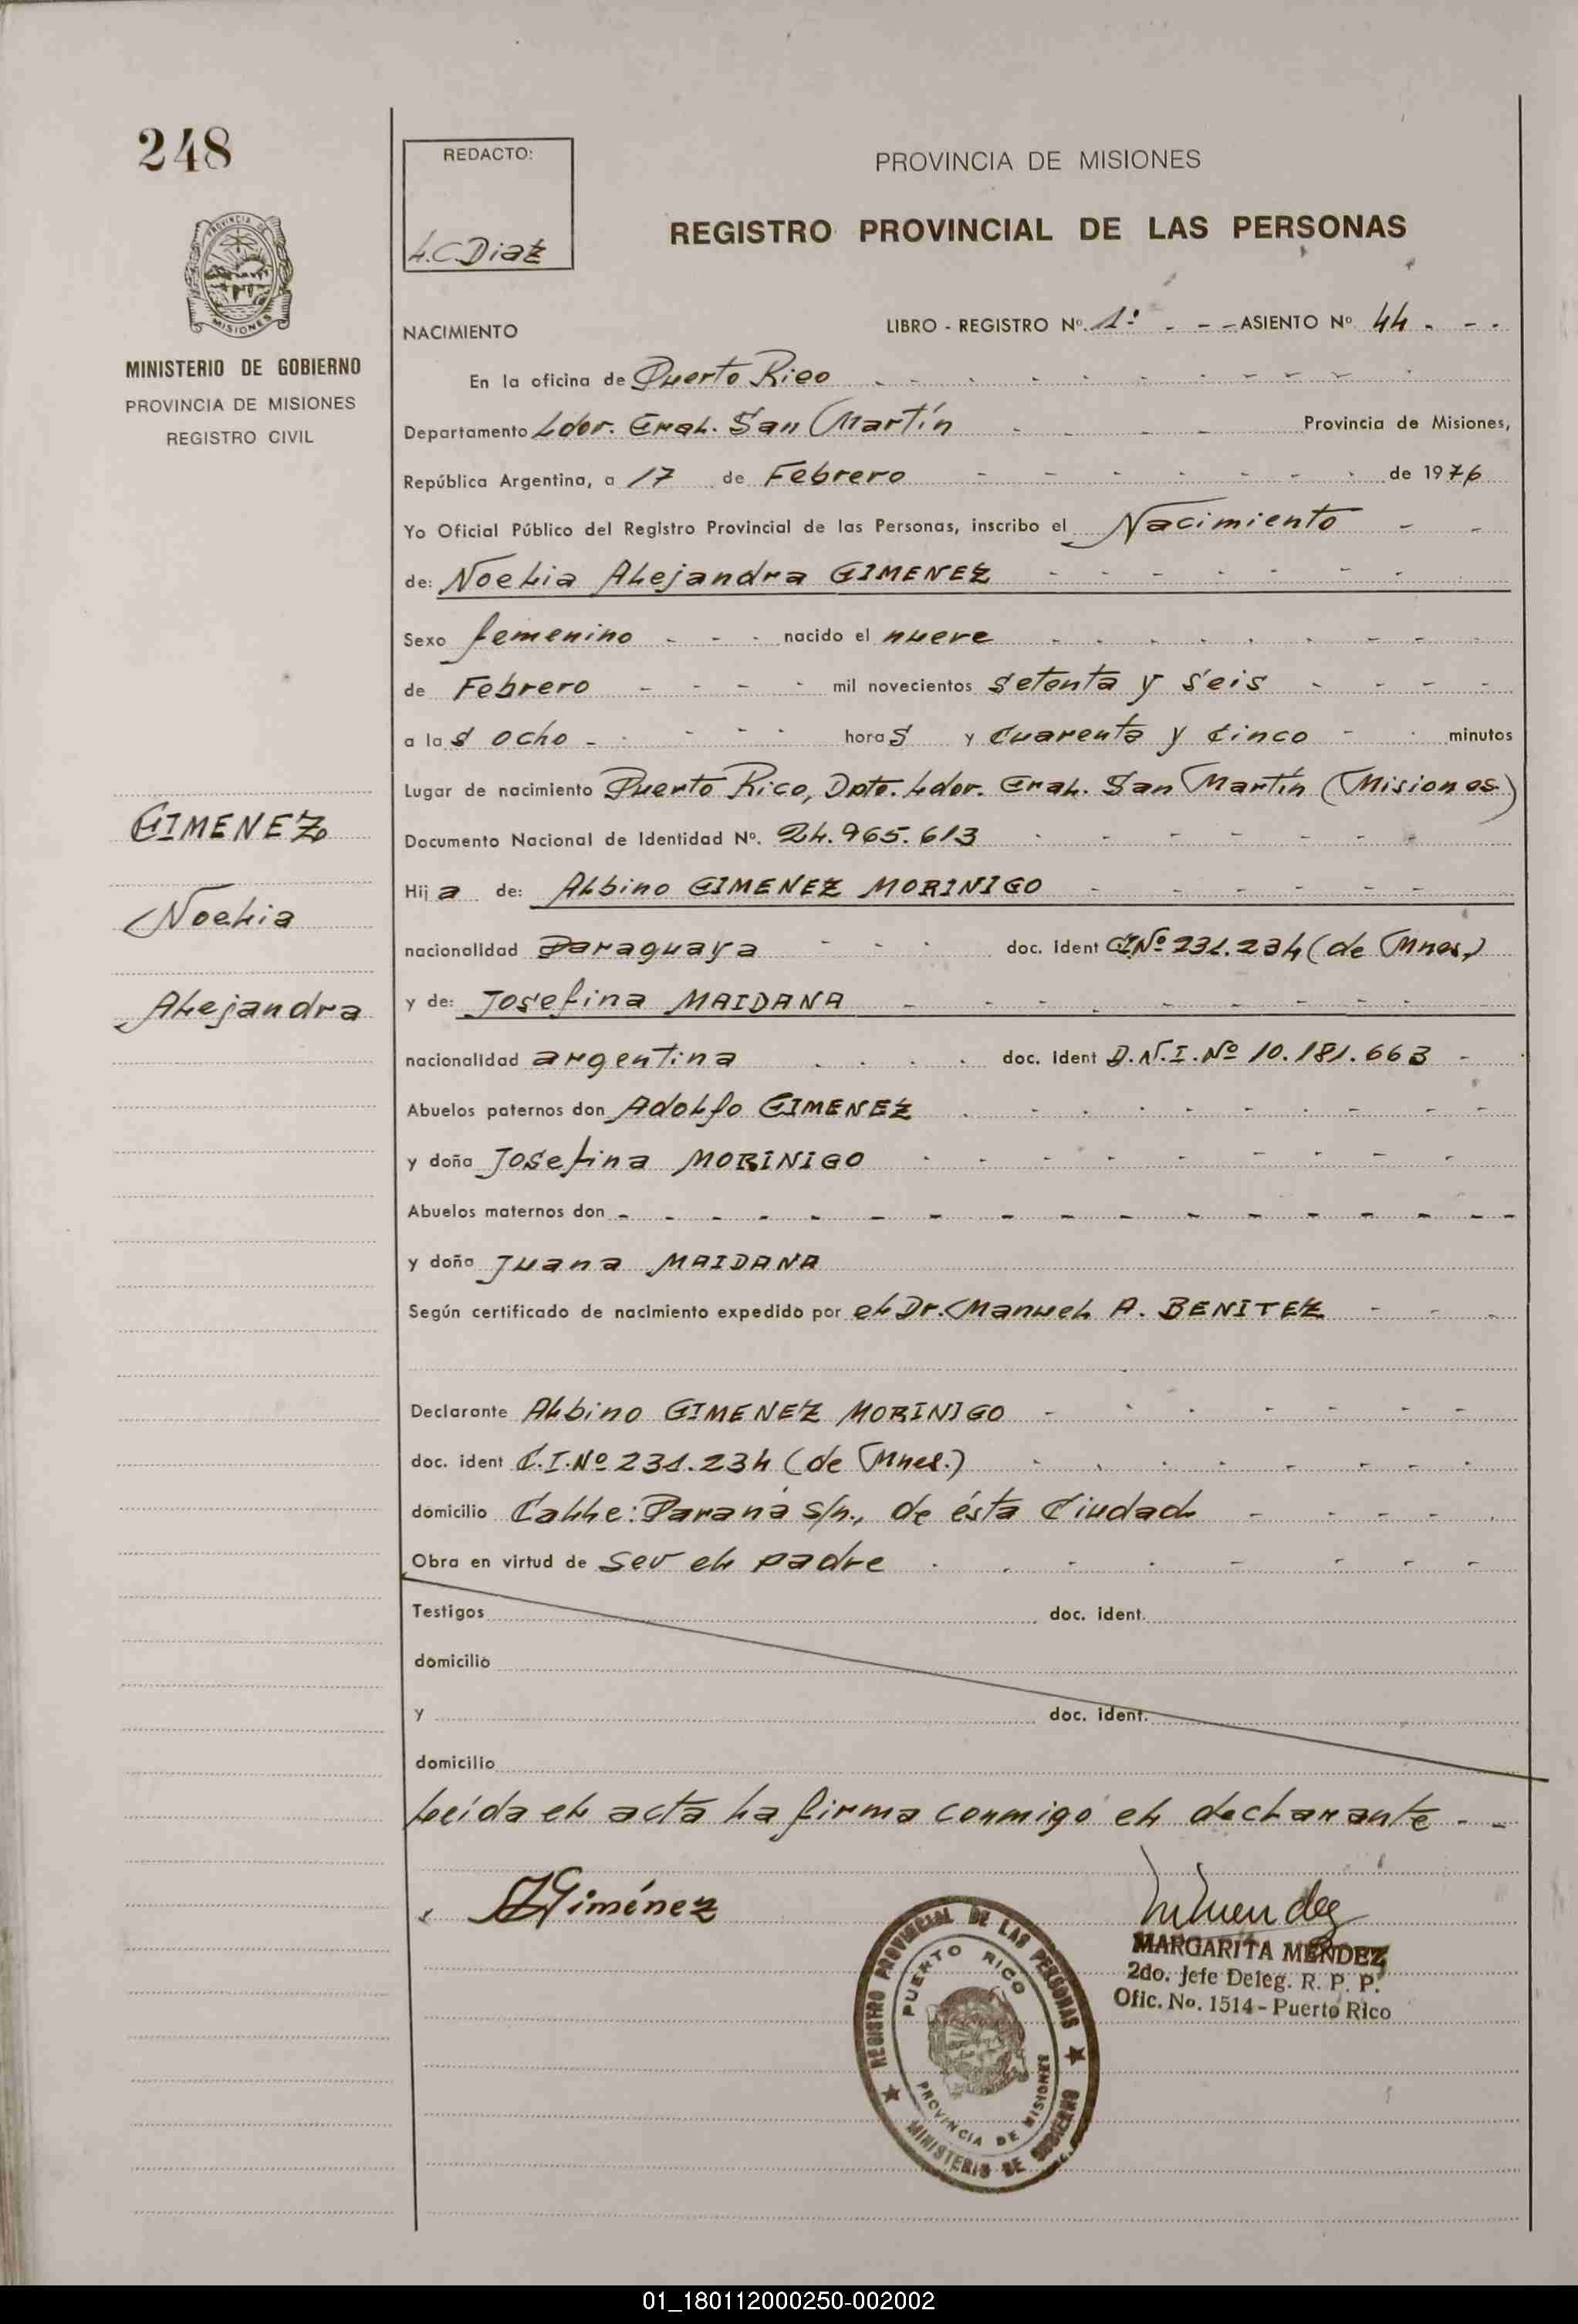 248
REDACTO:
L.C. Diaz
PROVINCIA DE MISIONES
REGISTRO PROVINCIAL DE LAS PERSONAS
PROVINCIA
MISIONES
MINISTERIO DE GOBIERNO
PROVINCIA DE MISIONES
REGISTRO CIVIL
NACIMIENTO LIBRO - REGISTRO Nº. 1º - - - ASIENTO Nº 44 - - -
En la oficina de Puerto Rico
Departamento Ldor. Gral. San Martín Provincia de Misiones,
República Argentina, a 17 de Febrero de 1976
Yo Oficial Público del Registro Provincial de las Personas, inscribo el Nacimiento
de: Noelia Alejandra GIMENEZ
Sexo femenino nacido el nueve
de Febrero mil novecientos setenta y seis
a las ocho horas y cuarenta y cinco minutos
Lugar de nacimiento Puerto Rico, Dpto. Ldor. Gral. San Martín (Misiones)
Documento Nacional de Identidad Nº. 24.965.613
Hija de: Albino GIMENEZ MORINIGO
nacionalidad Paraguaya doc. ident C.I.Nº 231.234 (de Mnes.)
y de: Josefina MAIDANA
nacionalidad argentina doc. ident D.N.I.Nº 10.181.663
Abuelos paternos don Adolfo GIMENEZ
y doña Josefina MORINIGO
Abuelos maternos don
y doña Juana MAIDANA
Según certificado de nacimiento expedido por el Dr. Manuel A. BENITEZ
Declarante Albino GIMENEZ MORINIGO
doc. ident C.I.Nº 231.234 (de Mnes.)
domicilio Calle: Paraná s/n., de ésta Ciudad
Obra en virtud de ser el padre
Testigos doc. ident.
domicilio
y doc. ident.
domicilio
Leída el acta la firma conmigo el declarante
GIMENEZ
Noelia
Alejandra
AGiménez
MMendez
MARGARITA MENDEZ
2do. Jefe Deleg. R. P. P.
Ofic. No. 1514 - Puerto Rico
REGISTRO PROVINCIAL DE LAS PERSONAS
PUERTO RICO
PROVINCIA DE MISIONES
MINISTERIO DE GOBIERNO
01_180112000250-002002